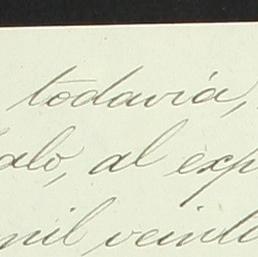 todavía,
alo, al exp
mil veint